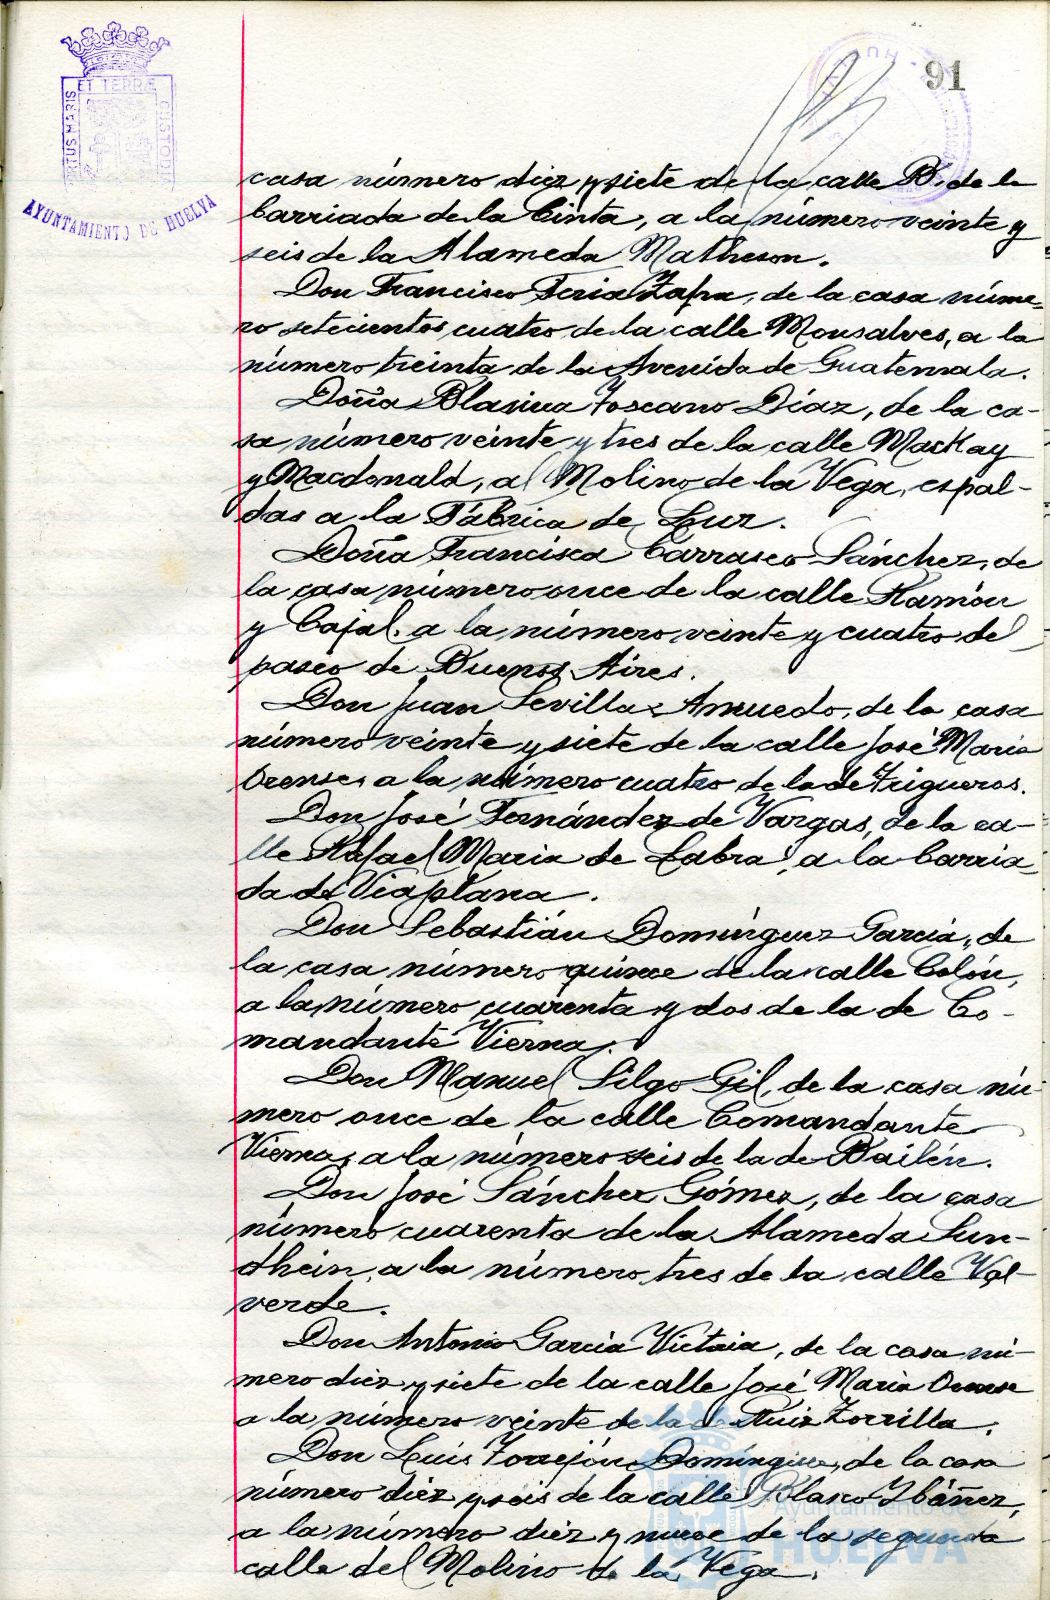 91
ET TERRÆ
PORTUS MARIS
CUSTODIA
AYUNTAMIENTO DE HUELVA
casa número diez y siete de la calle B. de la
barriada de la Cinta, a la número veinte y
seis de la Alameda Matheson.
Don Francisco Feria Zafra, de la casa núme-
ro setecientos cuatro de la calle Monsalves, a la
número treinta de la Avenida de Guatemala.
Doña Blasina Toscano Díaz, de la ca-
sa número veinte y tres de la calle Mackay
y Macdonald, al Molino de la Vega, espal-
das a la Fábrica de Luz.
Doña Francisca Carrasco Sánchez, de
la casa número once de la calle Ramón
y Cajal, a la número veinte y cuatro del
paseo de Buenos Aires.
Don Juan Sevilla Amuedo, de la casa
número veinte y siete de la calle José María
Orense, a la número cuatro de la de Trigueros.
Don José Fernández de Vargas, de la ca-
lle Rafael María de Labra, a la barria-
da de Viaplana.
Don Sebastián Domínguez García, de
la casa número quince de la calle Colón,
a la número cuarenta y dos de la de Co-
mandante Vierna.
Don Manuel Silgo Gil, de la casa nú-
mero once de la calle Comandante
Vierna, a la número seis de la de Bailén.
Don José Sánchez Gómez, de la casa
número cuarenta de la Alameda Sun-
dhein, a la número tres de la calle Val-
verde.
Don Antonio García, de la casa nú-
mero diez y siete de la calle José María Orense
a la número veinte de la de Ruiz Zorrilla.
Don Luis Torrejón Domínguez, de la casa
número diez y seis de la calle Blasco Ibáñez,
a la número diez y nueve de la segunda
calle del Molino de la Vega.
Ayuntamiento de
HUELVA